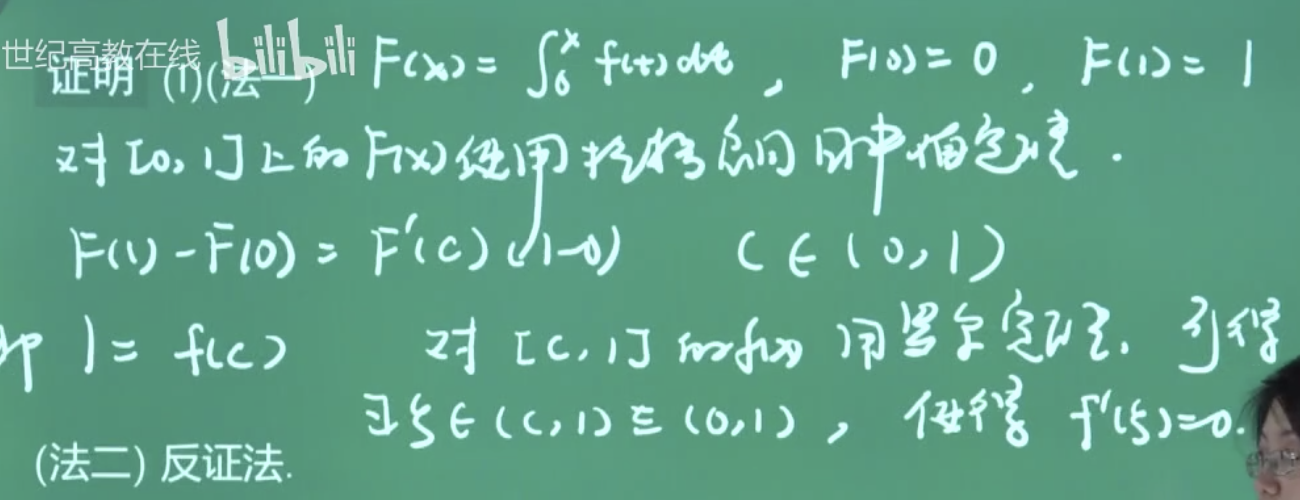 世纪高教在线 bilibili
证明 (1)(法一) F(x) = ∫₀ˣ f(t) dt , F(0) = 0 , F(1) = 1
对 [0, 1] 上的 F(x) 使用拉格朗日中值定理 .
F(1) - F(0) = F'(c) (1-0) c ∈ (0, 1)
即 1 = f(c) 对 [c, 1] 的 f(x) 用罗尔定理. 可得
∃ξ ∈ (c, 1) ⊆ (0, 1) , 使得 f'(ξ)=0.
(法二) 反证法.